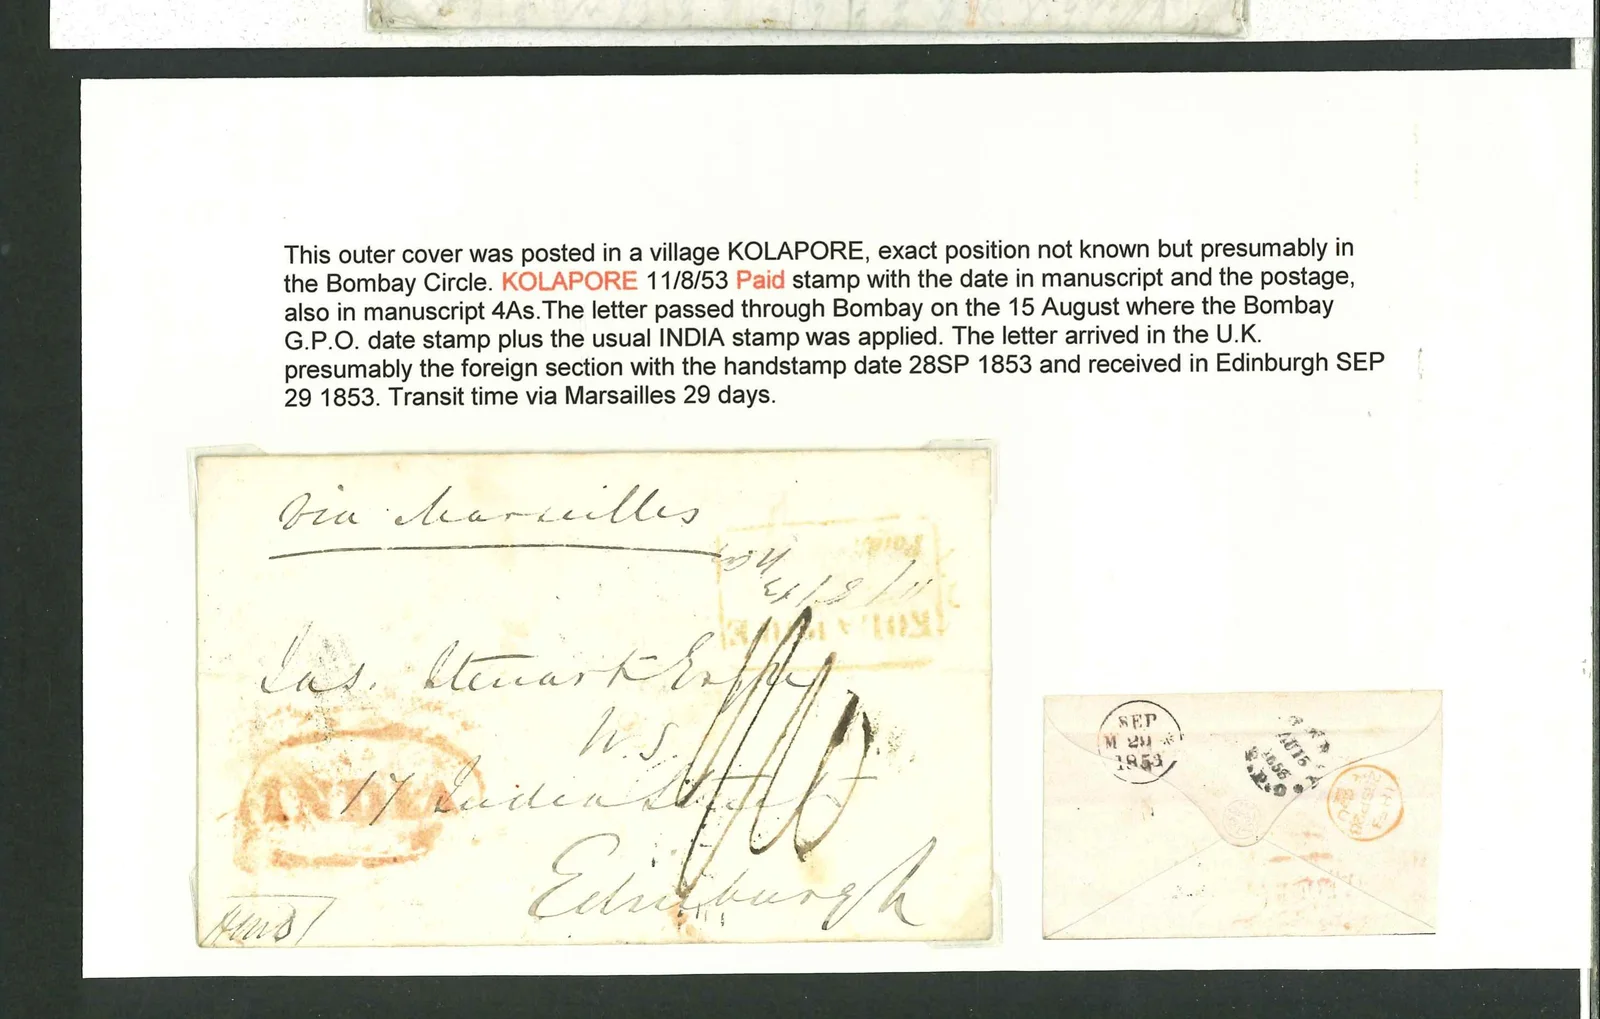 This outer cover was posted in a village KOLAPORE, exact position not known but presumably in
the Bombay Circle. KOLAPORE 11/8/53 Paid stamp with the date in manuscript and the postage,
also in manuscript 4As.The letter passed through Bombay on the 15 August where the Bombay
G.P.O. date stamp plus the usual INDIA stamp was applied. The letter arrived in the U.K.
presumably the foreign section with the handstamp date 28SP 1853 and received in Edinburgh SEP
29 1853. Transit time via Marsailles 29 days.
via Marseilles
Paid
11/8/53
KOLAPORE
Jas. Steuart Esqre
W.S.
INDIA
17 India Street
Edinburgh
SEP
M 29
1853